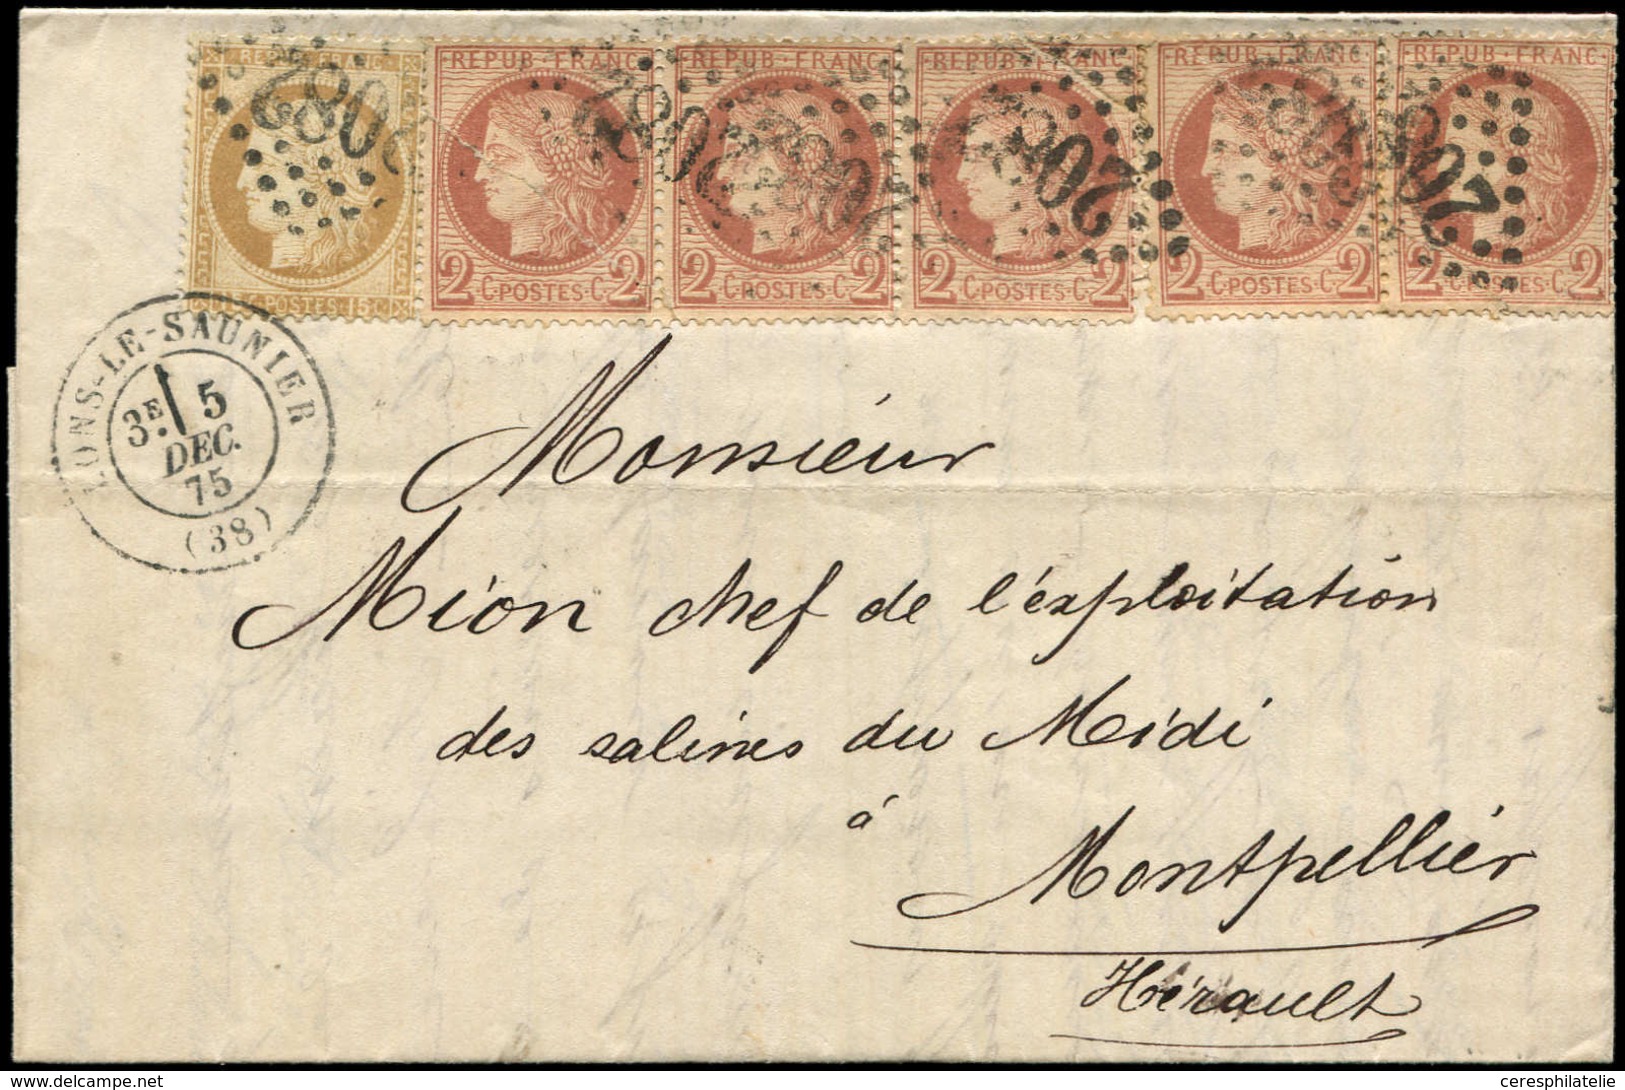 REPUB·FRANC REPUB·FRANC REPUB·FRANC REPUB·FRANC REPUB·FRANC
2082 2082 2082 2082
POSTES 15C
2 C·POSTES·C 2 2 C·POSTES·C 2 2 C·POSTES·C 2 2 C·POSTES·C 2 2 C·POSTES·C 2
LONS-LE-SAUNIER
3E 5
DEC.
75
(38)
Monsieur
Mion chef de l'exploitation
des salines du Midi
à
Montpellier
Hérault
ceresphilatelie